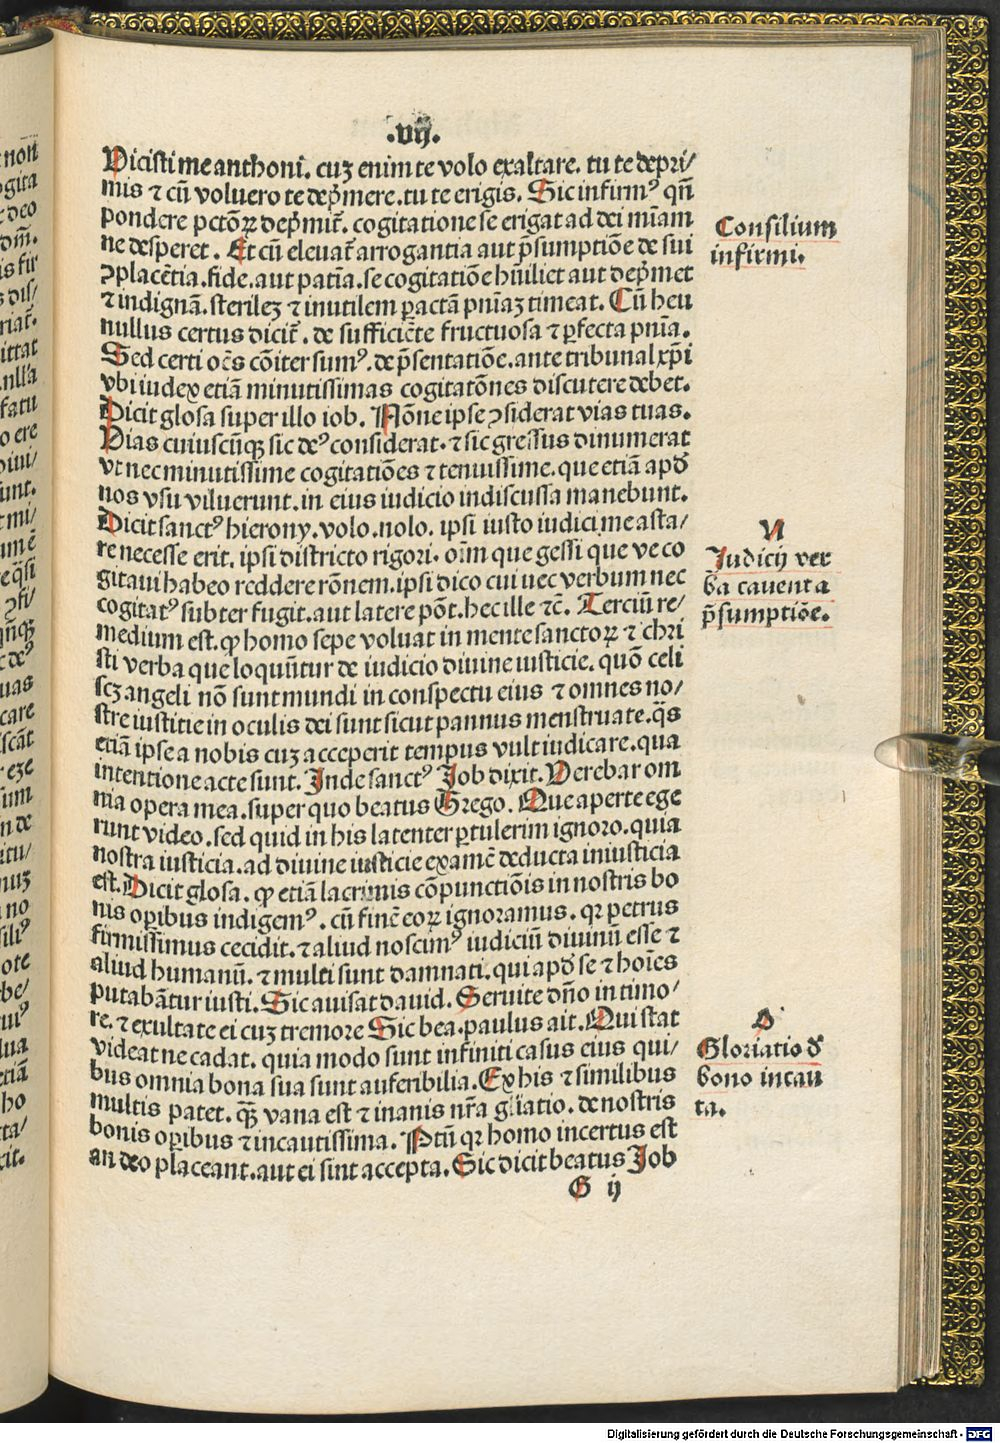 .vij.
Vicisti me anthoni. cuꝫ enim te volo exaltare. tu te depri/
mis ⁊ cū voluero te dep̄mere. tu te erigis. Sic infirmꝰ qn̄
pondere pctōꝝ dep̄mit̄. cogitatione se erigat ad dei mīam
ne desperet. Et cū eleuat̄ arrogantia aut p̄sumptiōe de sui
ꝯplacētia. fide. aut patīa. se cogitatiōe hūiliet aut dep̄met
⁊ indignā. sterileꝫ ⁊ inutilem ꝑactā pn̄iaꝫ timeat. Cū heu
nullus certus dicit̄. de sufficiēte fructuosa ⁊ ꝑfecta pn̄ia.
Sed certi oēs cōiter sumꝰ. de p̄sentatiōe. ante tribunal xp̄i
vbi iudex etiā minutissimas cogitatōnes discutere debet.
Dicit glosa super illo iob. Nōne ipse ꝯsiderat vias tuas.
Vias cuiuscūqꝫ sic deꝰ considerat. ⁊ sic gressus dinumerat
vt nec minutissime cogitatiōes ⁊ tenuissime. que etiā apđ
nos vsu viluerunt. in eius iudicio indiscussa manebunt.
Dicit sanctꝰ hierony. volo. nolo. ipsi iusto iudici me asta/
re necesse erit. ipsi districto rigori. oīm que gessi que ve co
gitaui habeo reddere rōnem. ipsi dico cui nec verbum nec
cogitatꝰ subter fugit. aut latere pōt. hec ille ⁊c̄. Terciū re/
medium est. ꝙ homo sepe voluat in mente sanctoꝝ ⁊ chri
sti verba que loquūtur de iudicio diuine iusticie. quō celi
scꝫ angeli nō sunt mundi in conspectu eius ⁊ omnes no/
stre iustitie in oculis dei sunt sicut pannus menstruate. q̄s
etiā ipse a nobis cuꝫ acceperit tempus vult iudicare. qua
intentione acte sunt. Inde sanctꝰ Job dixit. Verebar om
nia opera mea. super quo beatus Grego. Que aperte ege
runt video. sed quid in his latenter ꝑtulerim ignoro. quia
nostra iusticia. ad diuine iusticie examē deducta iniusticia
est. Dicit glosa. ꝙ etiā lacrimis cōpunctiōis in nostris bo
nis oꝑibus indigemꝰ. cū finē eoꝝ ignoramus. qꝛ petrus
firmissimus cecidit. ⁊ aliud noscimꝰ iudiciū diuinū esse ⁊
aliud humanū. ⁊ multi sunt damnati. qui apđ se ⁊ hoīes
putabātur iusti. Sic auisat dauid. Seruite dn̄o in timo/
re. ⁊ exultate ei cuꝫ tremore Sic bea. paulus ait. Qui stat
videat ne cadat. quia modo sunt infiniti casus eius qui/
bus omnia bona sua sunt auferibilia. Ex his ⁊ similibus
multis patet. qꝫ vana est ⁊ inanis nr̄a gl̄iatio. de nostris
bonis oꝑibus ⁊ incautissima. Ptū qꝛ homo incertus est
an deo placeant. aut ei sint accepta. Sic dicit beatus Job
G ij
Consilium
infirmi.
N
Iudicij ver
ba cauent a
p̄sumptiōe.
O
Gloriatio đ
bono incau
ta.
Digitalisierung gefördert durch die Deutsche Forschungsgemeinschaft - DFG